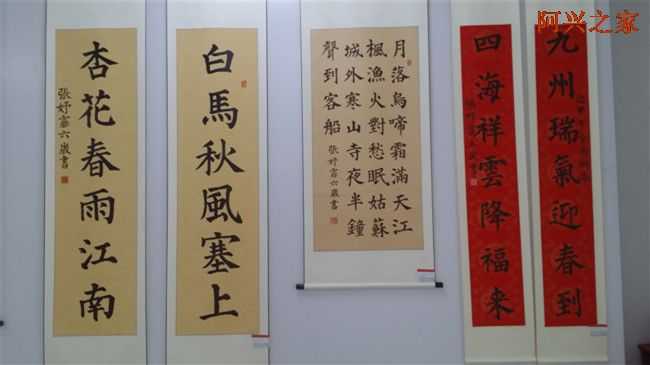 阿兴之家
九州瑞氣迎春到
四海祥雲降福来
月落烏啼霜滿天江
楓漁火對愁眠姑蘇
城外寒山寺夜半鐘
聲到客船 張妤 六歲書
白馬秋風塞上
杏花春雨江南
張妤 六歲書